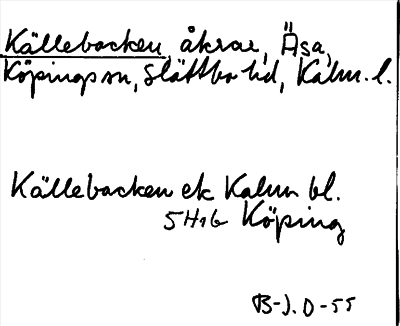 Källebacken, åkrar, Äsa,
Köpings sn, Slättbo hd, Kalm. l.
Källebacken ek Kalm bl.
5H1b Köping
B-J. O-55